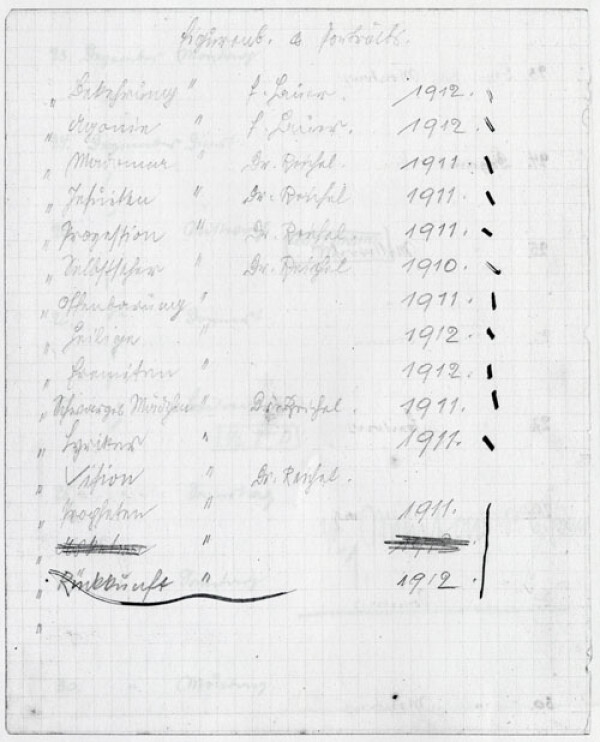 Figurenb. & Porträits.
„ Bekehrung “ F. Lauer. 1912.
„ Agonie “ F. Lauer. 1912.
„ Madonna “ Dr. Reichel. 1911.
„ Jesuiten “ Dr. Reichel 1911.
„ Prozession “ Dr. Reichel 1911.
„ Selbstseher “ Dr. Reichel 1910.
„ Offenbarung “ 1911.
„ Heilige “ 1912.
„ Eremiten “ 1912.
„ Schwarzes Mädchen “ Dr. Reichel. 1911.
„ Lyriker “ 1911.
„ Vision “ Dr. Reichel.
„ Propheten “ 1911.
„ “
„ Rückkunft “ 1912.
„